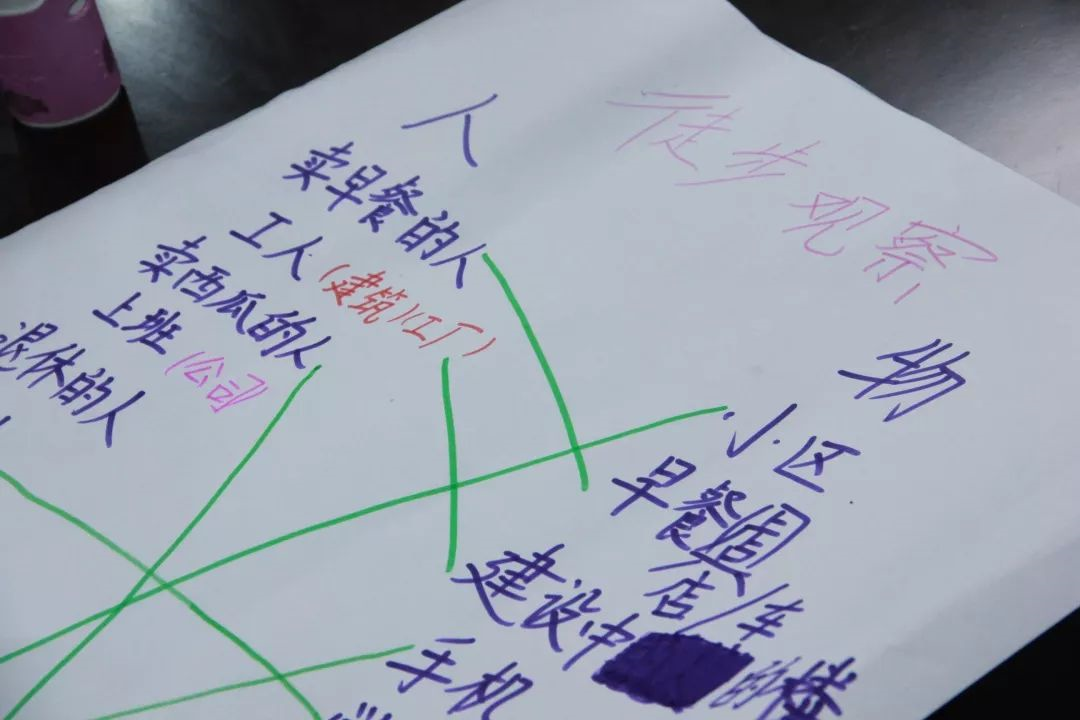 徒步观察
人
卖早餐的人
工人(建筑)(工厂)
卖西瓜的人
上班(公司)
退休的人
物
小区
早餐店/车
建设中的楼
手机